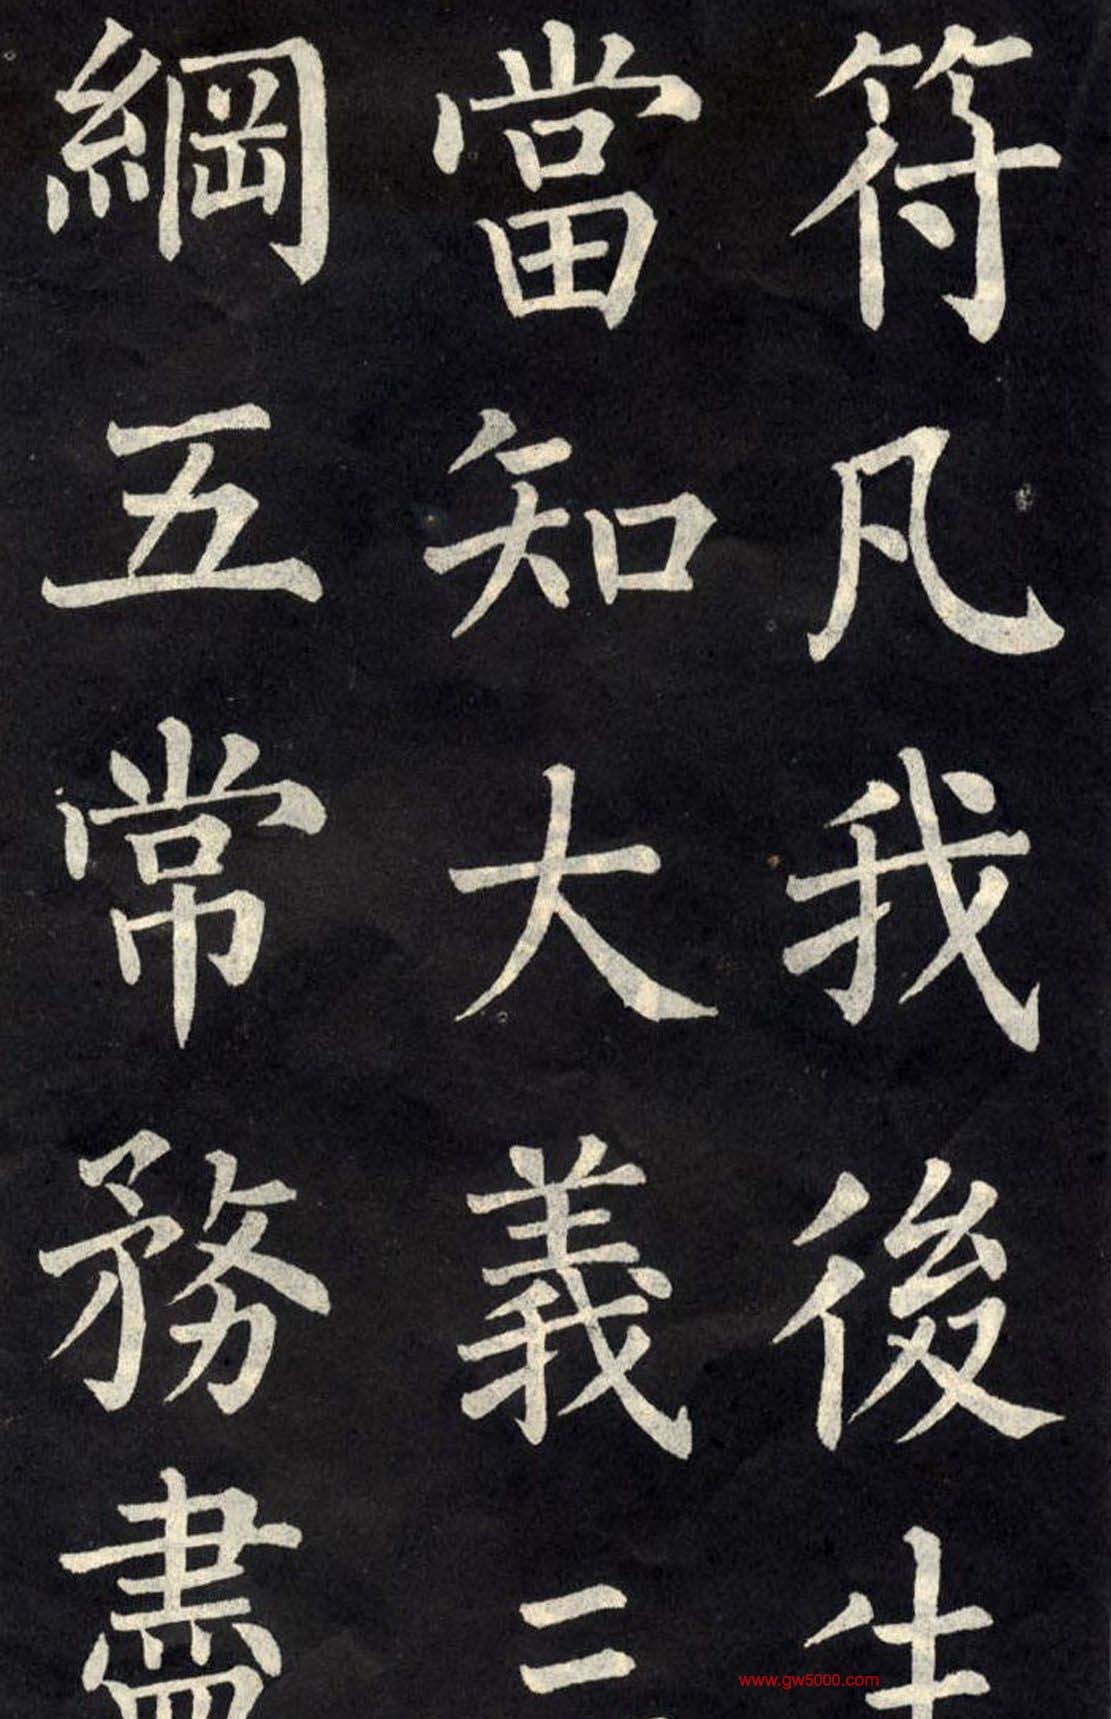 符凡我後生
當知大義三
綱五常務盡
www.gw5000.com